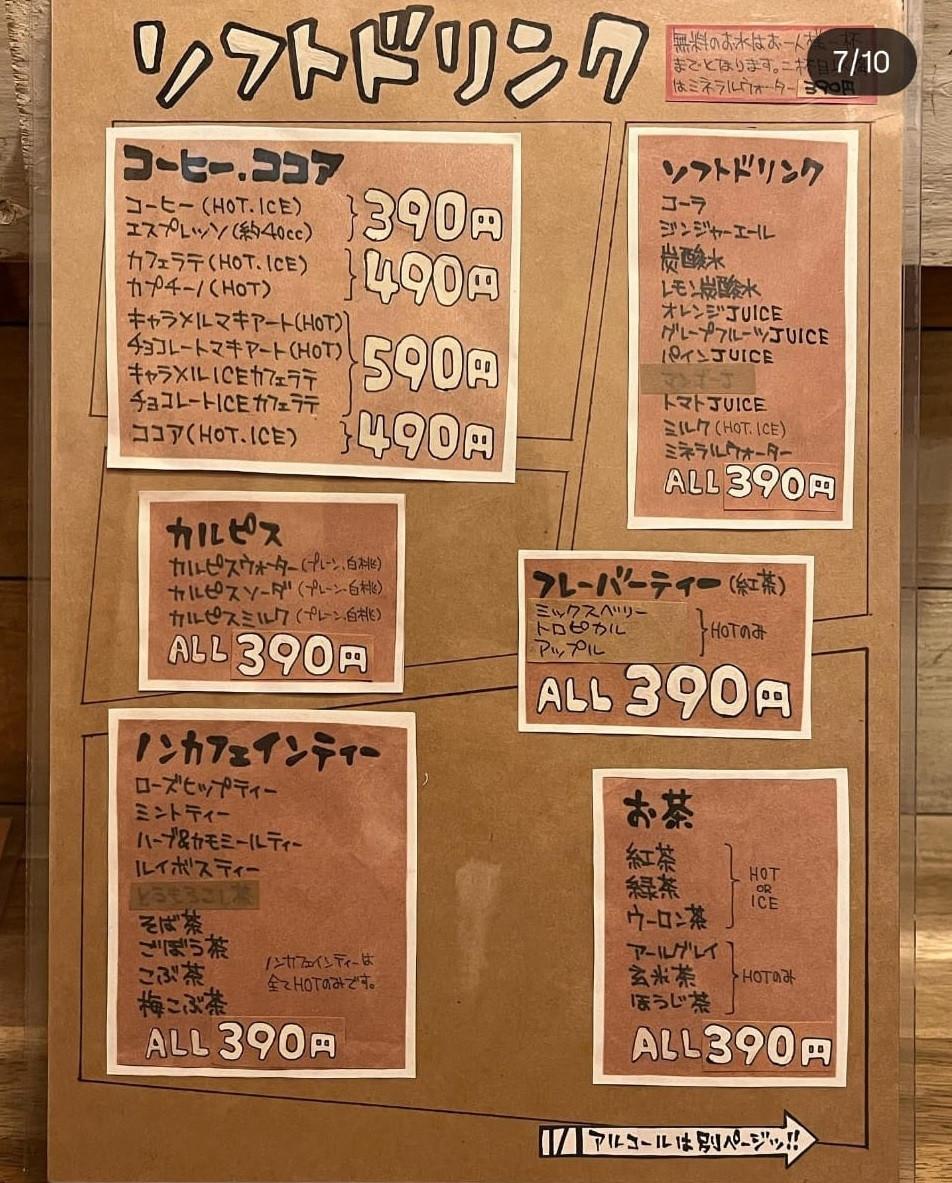 ソフトドリンク
無料のお水はお一人様一杯
までとなります。二杯目
はミネラルウォーター 390円
7/10
コーヒー.ココア
コーヒー(HOT.ICE)
エスプレッソ(約40cc)
390円
カフェラテ(HOT.ICE)
カプチーノ(HOT)
490円
キャラメルマキアート(HOT)
チョコレートマキアート(HOT)
キャラメルICEカフェラテ
チョコレートICEカフェラテ
590円
ココア(HOT.ICE)
490円
ソフトドリンク
コーラ
ジンジャーエール
炭酸水
レモン炭酸水
オレンジJUICE
グレープフルーツJUICE
パインJUICE
トマトJUICE
ミルク(HOT.ICE)
ミネラルウォーター
ALL390円
カルピス
カルピスウォーター(プレーン.白桃)
カルピスソーダ(プレーン.白桃)
カルピスミルク(プレーン.白桃)
ALL 390円
フレーバーティー(紅茶)
ミックスベリー
トロピカル
アップル
HOTのみ
ALL 390円
ノンカフェインティー
ローズヒップティー
ミントティー
ハーブ&カモミールティー
ルイボスティー
とうもろこし茶
そば茶
ごぼう茶
こぶ茶
梅こぶ茶
ノンカフェインティーは
全てHOTのみです。
ALL 390円
お茶
紅茶
緑茶
ウーロン茶
HOT
OR
ICE
アールグレイ
玄米茶
ほうじ茶
HOTのみ
ALL390円
アルコールは別ページッ!!